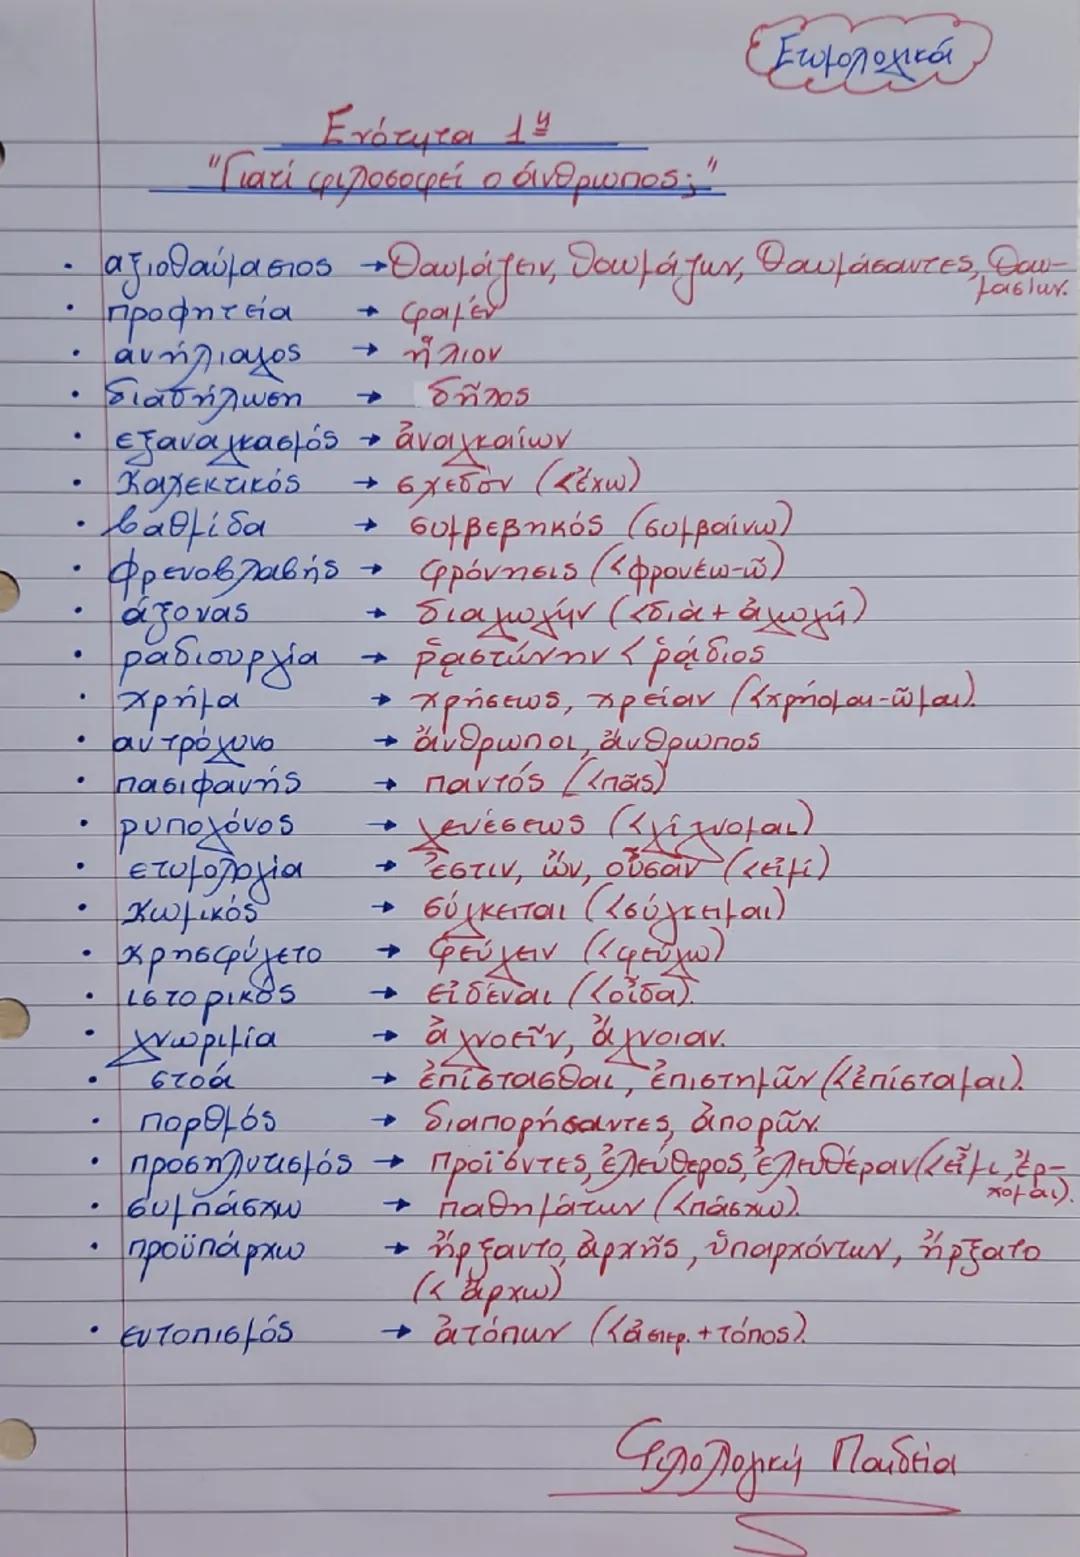 Ετυμολογικά
Ενότητα 1η
"Γιατί φιλοσοφεί ο άνθρωπος;"
• αξιοθαύμαστος → θαυμάζειν, θαυμάζων, θαυμάσαντες, θαυ-
μασίων.
• προφητεία → φαμέν
• ανήλιαγος → ἥλιον
• διαδήλωση → δῆλος
• εξαναγκασμός → ἀναγκαίων
• καχεκτικός → σχεδὸν (<ἔχω)
• βαθμίδα → συμβεβηκός (συμβαίνω)
• φρενοβλαβής → φρόνησις (<φρονέω-ῶ)
• άξονας → διαγωγὴν (<διὰ + ἀγωγή)
• ραδιουργία → ῥᾳστώνην < ῥᾴδιος
• χρήμα → χρήσεως, χρείαν (<χρήομαι-ῶμαι).
• αντρόγυνο → ἄνθρωποι, ἄνθρωπος
• πασιφανής → παντός (<πᾶς)
• ρυπογόνος → γενέσεως (<γίγνομαι)
• ετυμολογία → ἔστιν, ὤν, οὖσαν (<εἰμί)
• κωμικός → σύγκειται (<σύγκειμαι)
• κρησφύγετο → φεύγειν (<φεύγω)
• ιστορικός → εἰδέναι (<οἶδα).
• γνωριμία → ἀγνοεῖν, ἄγνοιαν.
• στοά → ἐπίστασθαι, ἐπιστημῶν (<ἐπίσταμαι).
• πορθμός → διαπορήσαντες, ἀπορῶν.
• προσηλυτισμός → προϊόντες, ἐλεύθερος, ἐλευθέραν (<εἶμι, ἔρ-
χομαι).
• συμπάσχω → παθημάτων (<πάσχω).
• προϋπάρχω → ἤρξαντο, ἀρχῆς, ὑπαρχόντων, ἤρξατο
(< ἄρχω)
• εντοπισμός → ἀτόπων (<ἀ στερ. + τόπος).
Φιλολογική Παιδεία